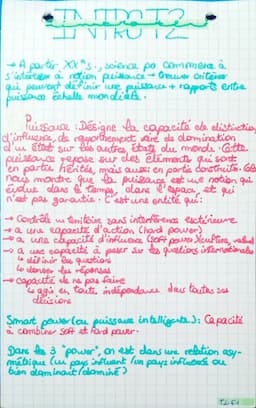 INTRO T2
→ A partir XXe s., science po commence à
s'intéresser à notion puissance → trouver critères
qui peuvent définir une puissance + rapports entre
puissance échelle mondiale.
Puissance : Désigne la capacité de distinction,
d'influence, de rayonnement voire de domination
d'un État sur les autres États du monde. Cette
puissance repose sur des éléments qui sont
en partie hérités, mais aussi en partie construits. Cela
nous montre que la puissance est une notion qui
évolue dans le temps, dans l'espace, et qui
n'est pas garantie. C'est une entité qui :
→ Contrôle un territoire sans interférence extérieure
→ a une capacité d'action (hard power)
→ a une capacité d'influence (soft power) (culture, valeurs)
→ a une capacité à peser sur les questions internationales
↳ définir les questions
↳ donner les réponses
→ capacité de ne pas faire
↳ agis en toute indépendance dans toutes ses
décisions
Smart power (ou puissance intelligente) : Capacité
à combiner soft et hard power.
Dans les 3 "power", on est dans une relation asy-
métrique (un pays influent / un pays influencé ou
bien dominant/dominé)